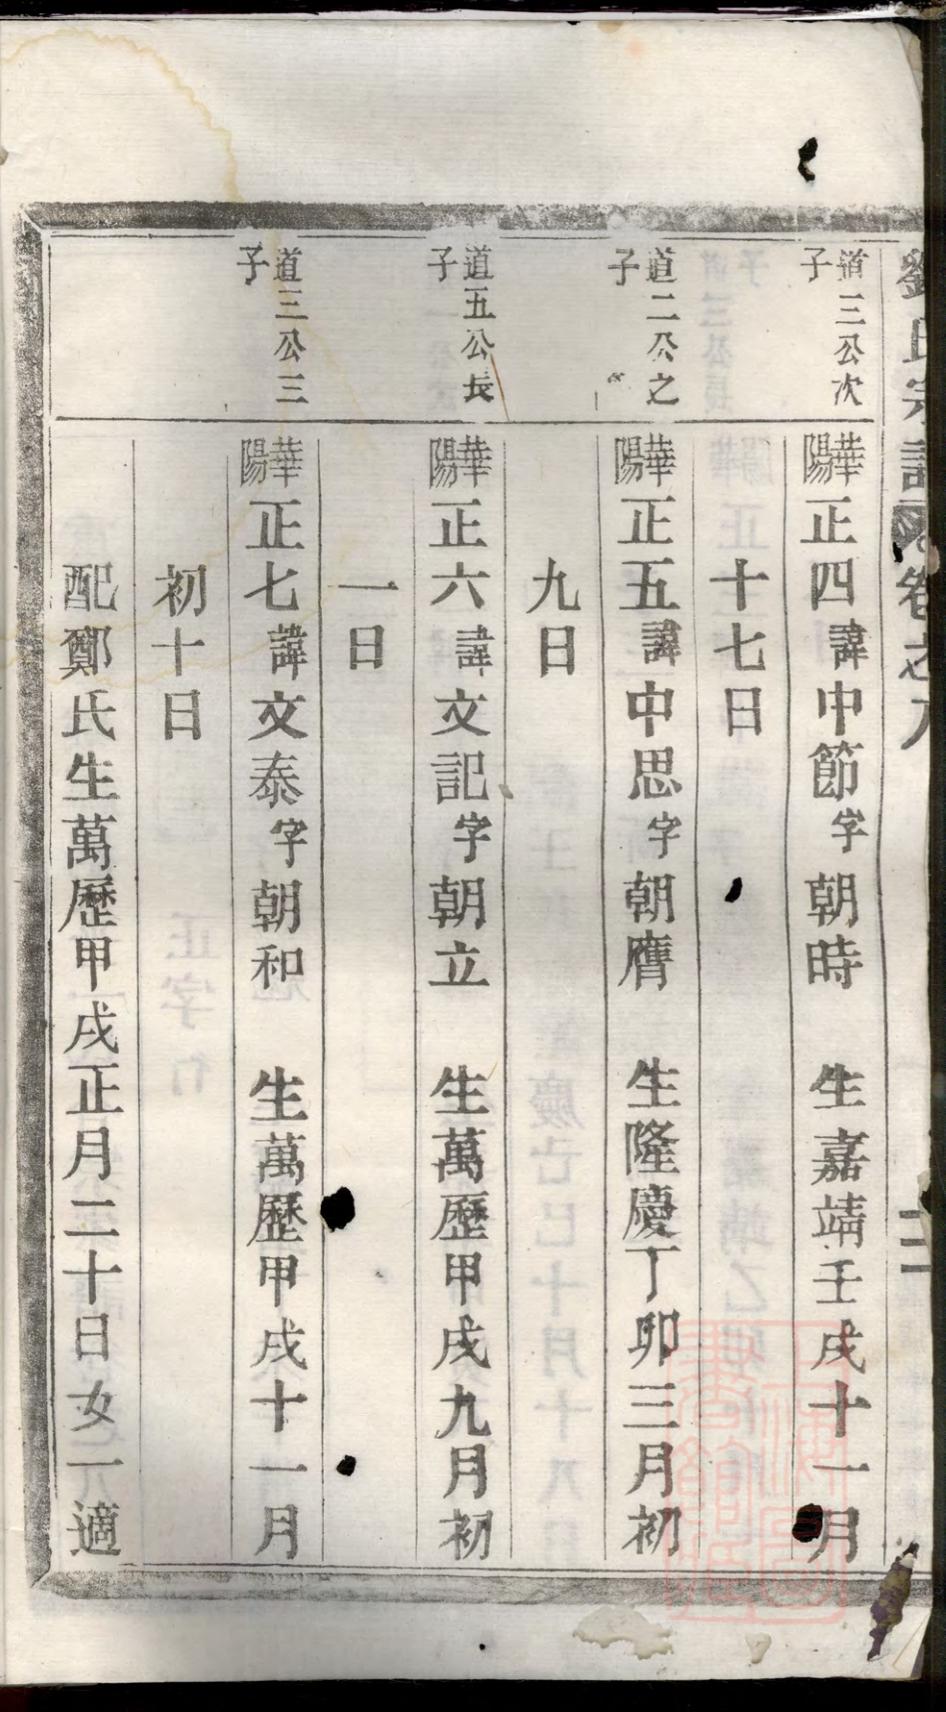 劉氏宗譜 卷之八 二
道三公次子
華陽正四諱中節字朝時 生嘉靖壬戌十一月
十七日
道二公之子
華陽正五諱中思字朝膺 生隆慶丁卯三月初
九日
道五公長子
華陽正六諱文記字朝立 生萬歷甲戌九月初
一日
道三公三子
華陽正七諱文泰字朝和 生萬歷甲戌十一月
初十日
配鄭氏生萬歷甲戌正月二十日女一適